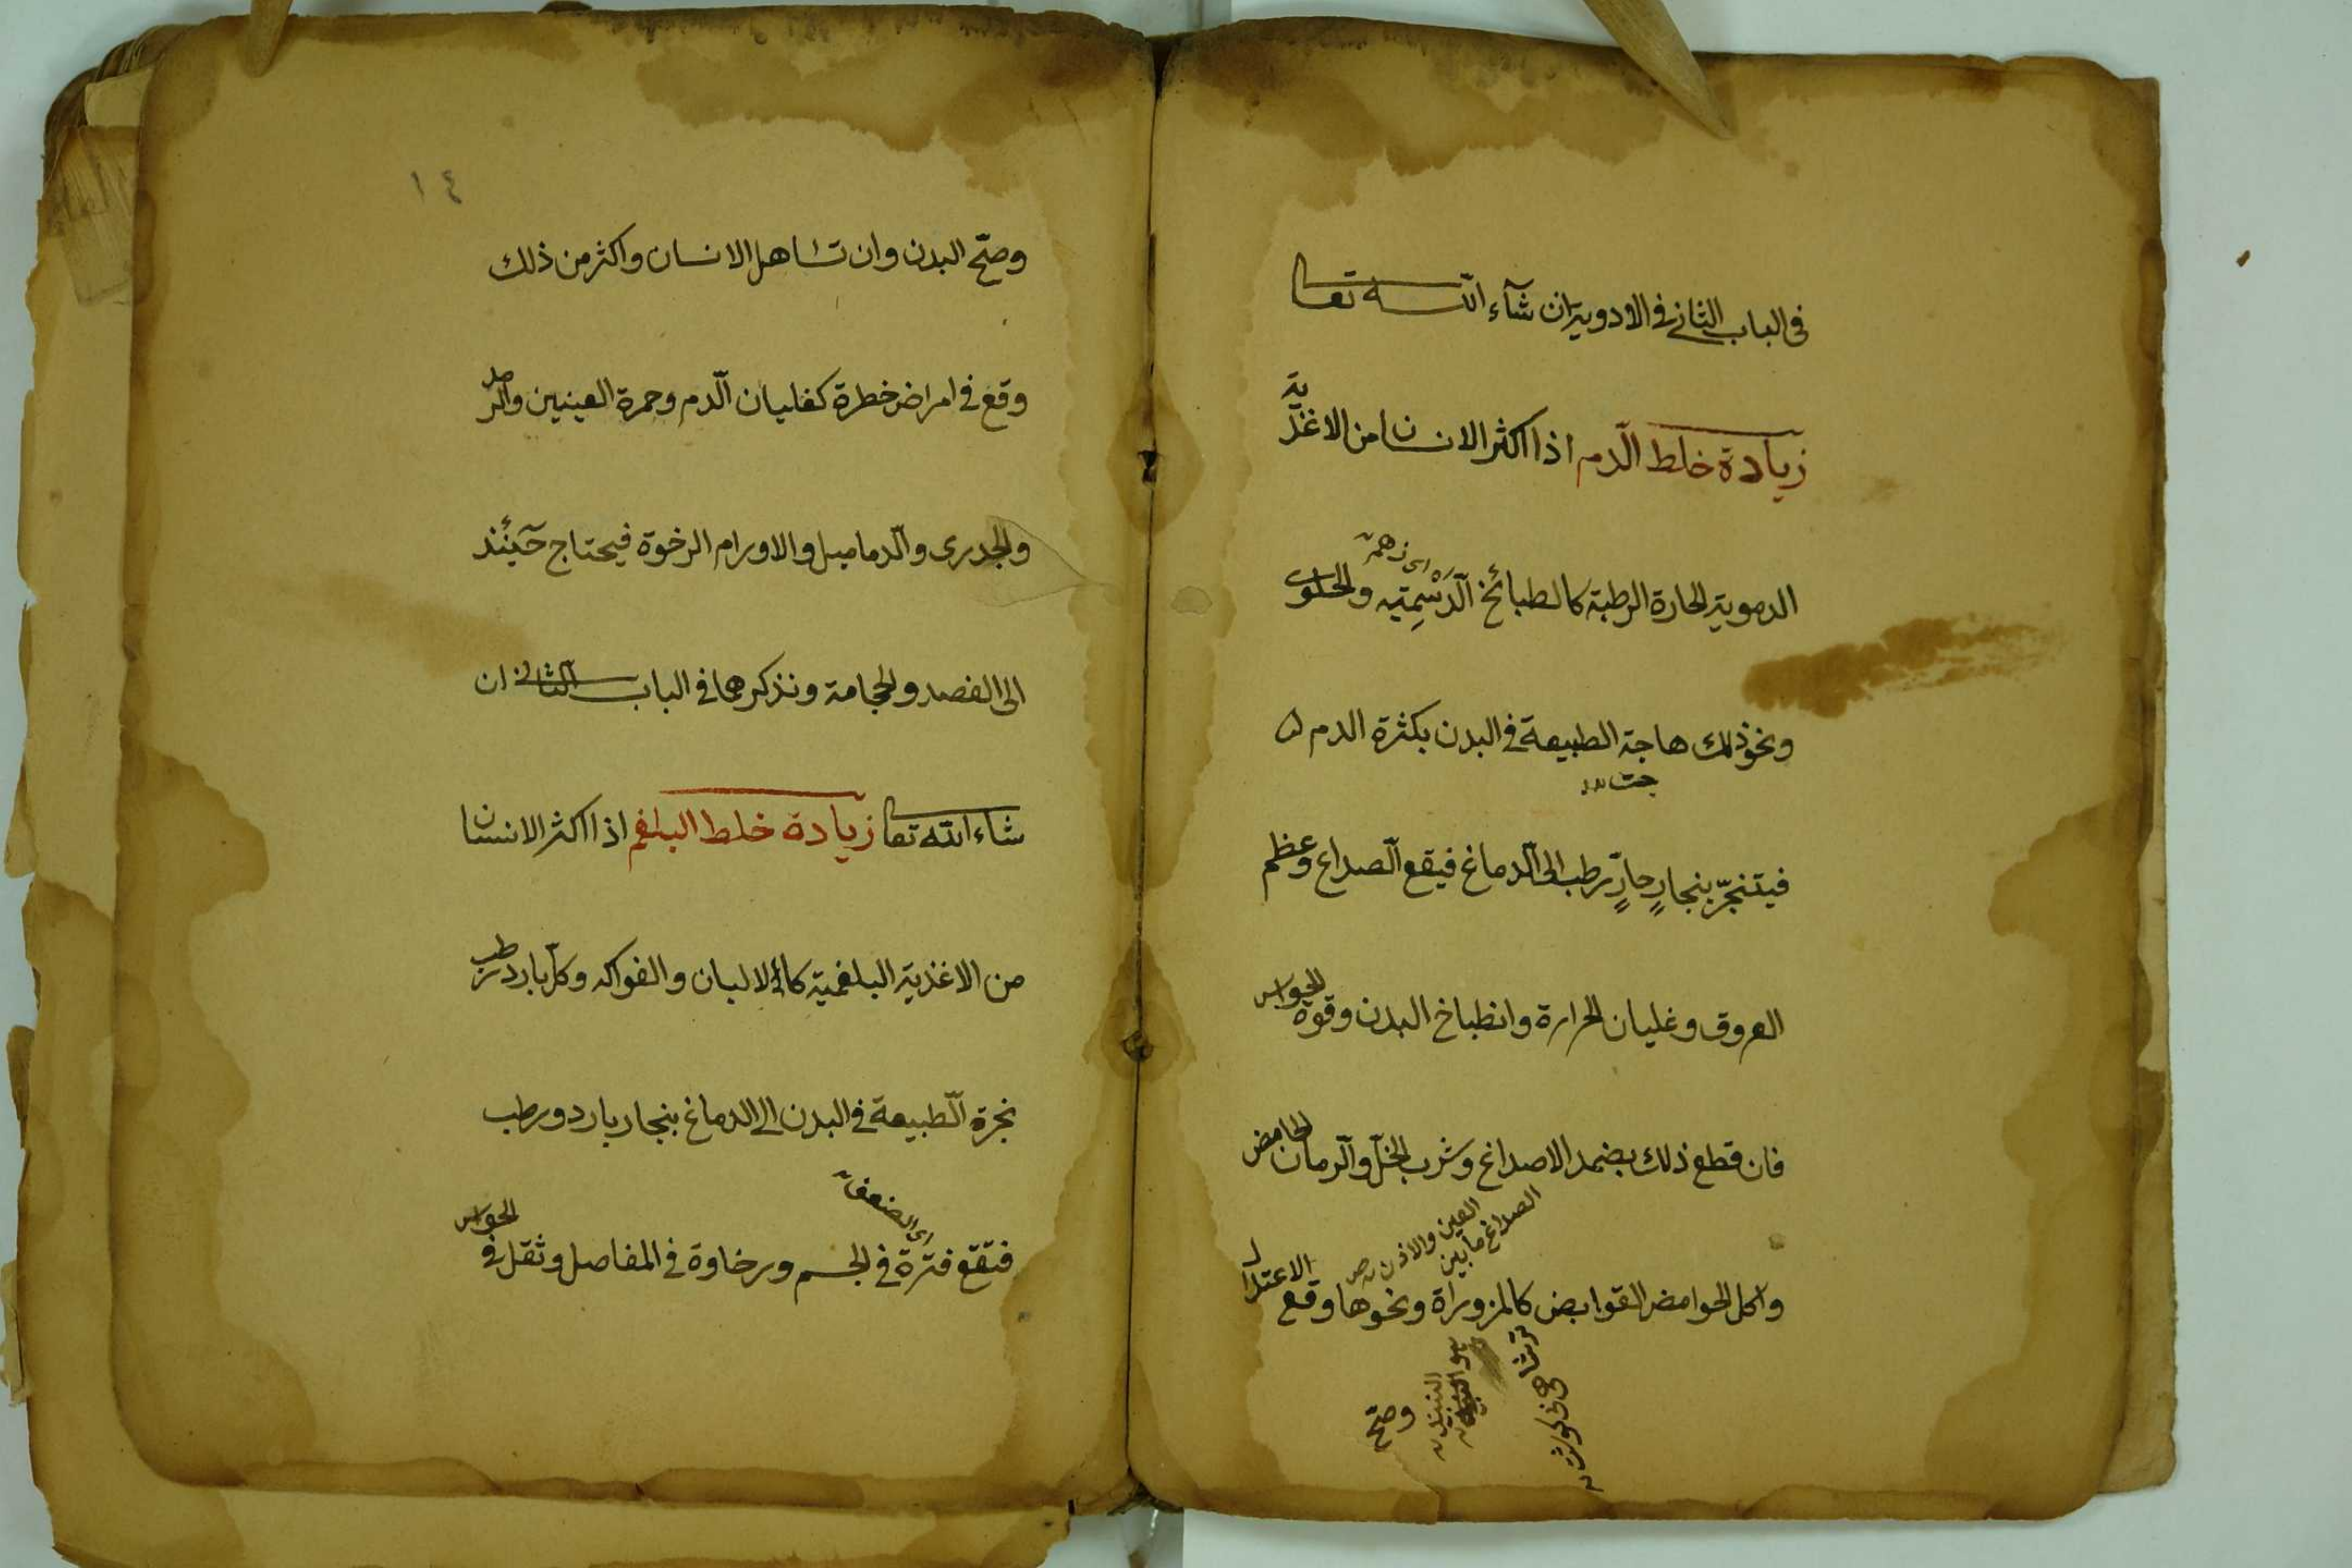 في الباب الثاني في الادوية ان شآء الله تعا
زيادة خلط الدم اذا اكثر الانسان من الاغذية
الدموية الحارة الرطبة كالطبائخ الدسمة والحلوى
اى زهم
ونحو ذلك هاجت الطبيعة في البدن بكثرة الدم
فيتبخر ببخارٍ حارٍّ رطب الى الدماغ فيقع الصداع وعظم
العروق وغليان الحرارة وانطباخ البدن وقوة الحواس
فان قطع ذلك بضمد الاصداغ وشرب الخل والرمان الحامض
الصداغ ما بين
العين والاذن
واكل الحوامض القوابض كالمزوراة ونحوها وقع الاعتدال
وصح
١٤
وصح البدن وان تساهل الانسان واكثر من ذلك
وقع في امراض خطرة كغليان الدم وحمرة العينين والرمد
والجدرى والدماميل والاورام الرخوة فيحتاج حينئذ
الى الفصد والحجامة ونذكرها في الباب الثاني ان
شاء الله تعا زيادة خلط البلغم اذا اكثر الانسان
من الاغذية البلغمية كالالبان والفواكه وكل بارد رطب
بخرة الطبيعة في البدن الى الدماغ ببخار بارد ورطب
اى الضعف
فتقع فترة في الجسم ورخاوة في المفاصل وثقل في الحواس